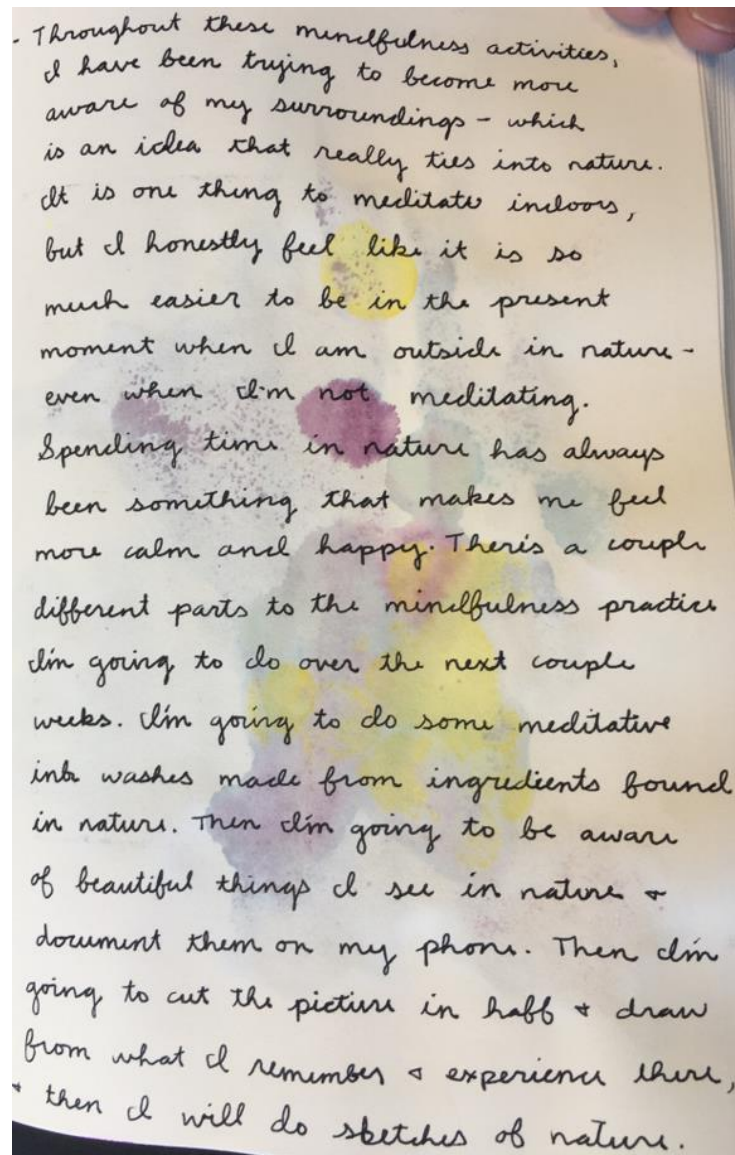 - Throughout these mindfulness activities,
I have been trying to become more
aware of my surroundings - which
is an idea that really ties into nature.
It is one thing to meditate indoors,
but I honestly feel like it is so
much easier to be in the present
moment when I am outside in nature -
even when I'm not meditating.
Spending time in nature has always
been something that makes me feel
more calm and happy. There's a couple
different parts to the mindfulness practice
I'm going to do over the next couple
weeks. I'm going to do some meditative
ink washes made from ingredients found
in nature. Then I'm going to be aware
of beautiful things I see in nature +
document them on my phone. Then I'm
going to cut the picture in half + draw
from what I remember + experience there,
+ then I will do sketches of nature.